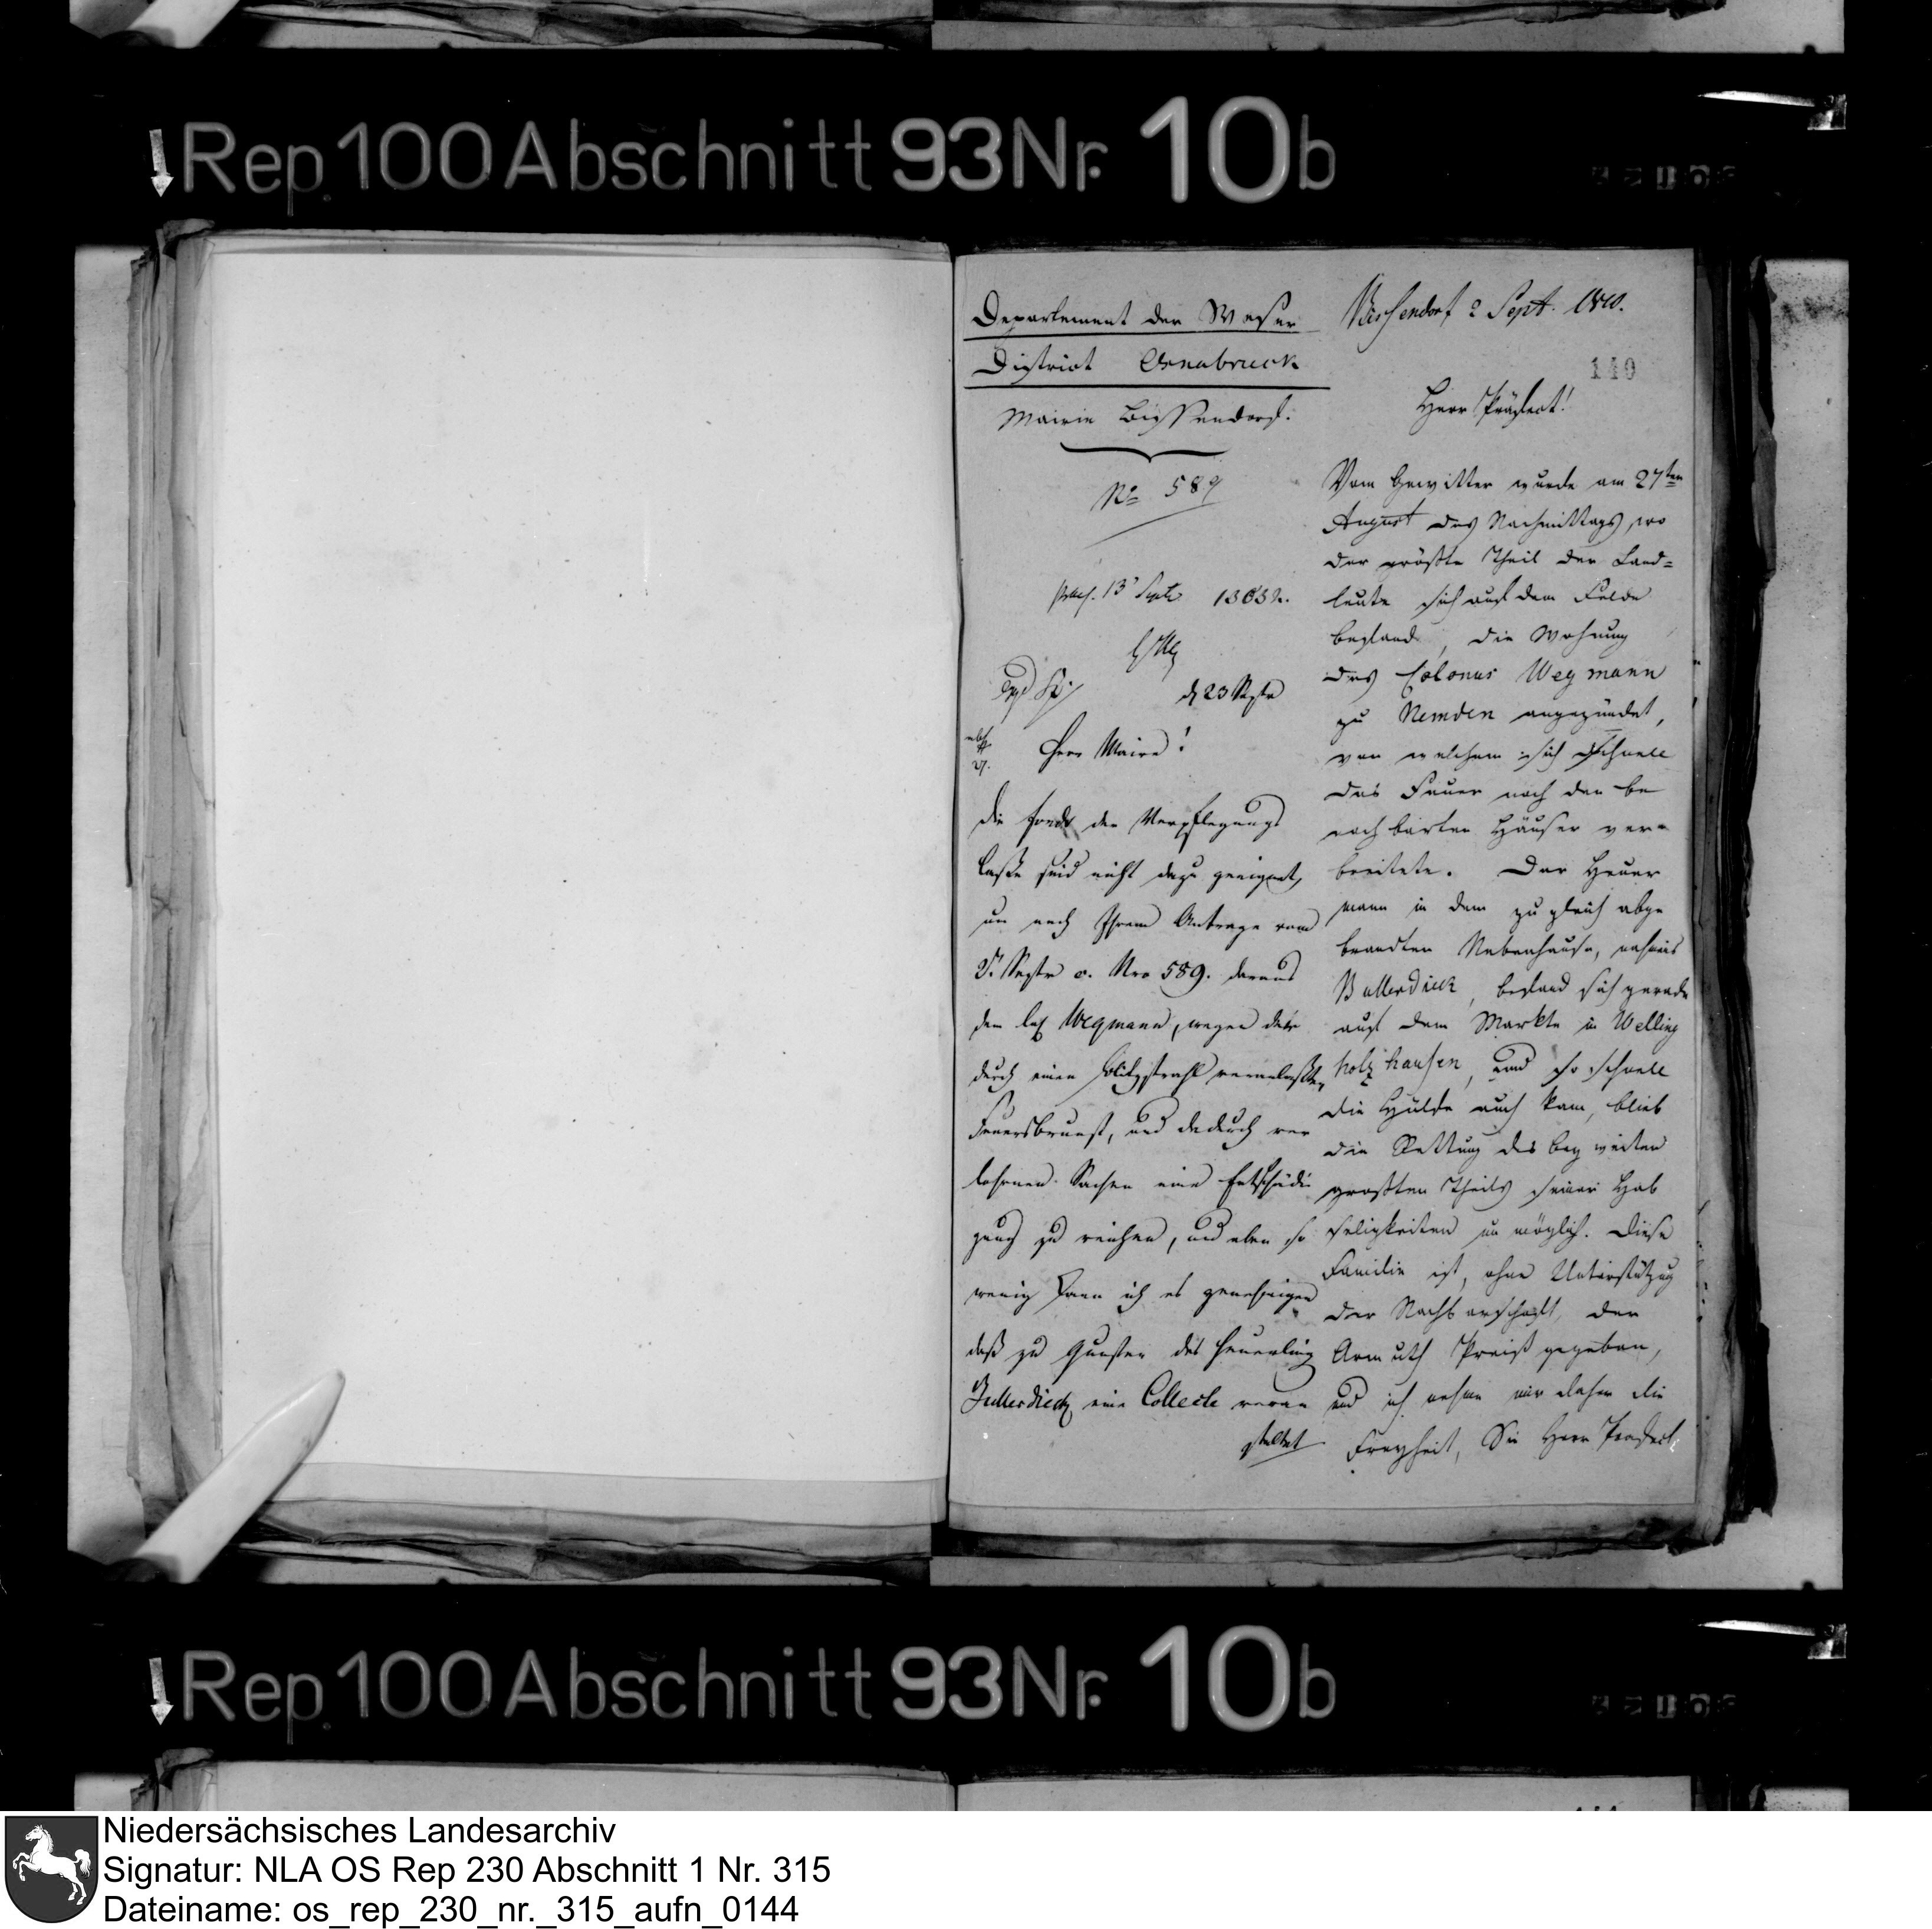 Rep. 100 Abschnitt 93 Nr. 10b
Departement der Weser
District Osnabrueck
Mairie Bissendorf.
No 589
praes. 13 Septr 1303 2.
d 23 Septr
Herr Maire!
die Fonds der Verpflegungs
Casse sind nicht dazu geeignet,
um nach Ihrem Antrage vom
2. Septr c. Nro 589. daraus
dem Col Wegmann, wegen der
durch einen Blitzstrahl veranlaßten
Feuersbrunst, und dadurch ver
lohrnen Sachen eine Entschädi
gung zu reichen, und eben so
wenig kann ich es genehmigen
daß zu Gunsten des Heuerling
Bullerdieck eine Collecte veran
staltet
Bissendorf 2 Sept. 1810.
140
Herr Präfect!
Vom Gewitter wurde am 27ten
August des Nachmittags, wo
der größte Theil der Land=
leute sich auf dem Felde
befand, die Wohnung
des Colonus Wegmann
zu Nemden angezündet,
von welchem sich schnell
das Feuer nach den be
nachbarten Häuser ver=
breitete. Der Heuer
mann in dem zugleich abge
brandten Nebenhause, nahmens
Bullerdieck, befand sich gerade
auf dem Markte in Welling
holzhausen, und so schnell
die Hülfe auch kam, blieb
die Rettung des bey weiten
großten Theils seiner Hab
seligkeiten un möglich. Diese
Familie ist, ohne Unterstützug
der Nachbarschaft, der
Armuth Preiß gegeben,
und ich nehme mir daher die
Freyheit, Sie Herr Praefect
Rep. 100 Abschnitt 93 Nr. 10b
Niedersächsisches Landesarchiv
Signatur: NLA OS Rep 230 Abschnitt 1 Nr. 315
Dateiname: os_rep_230_nr._315_aufn_0144